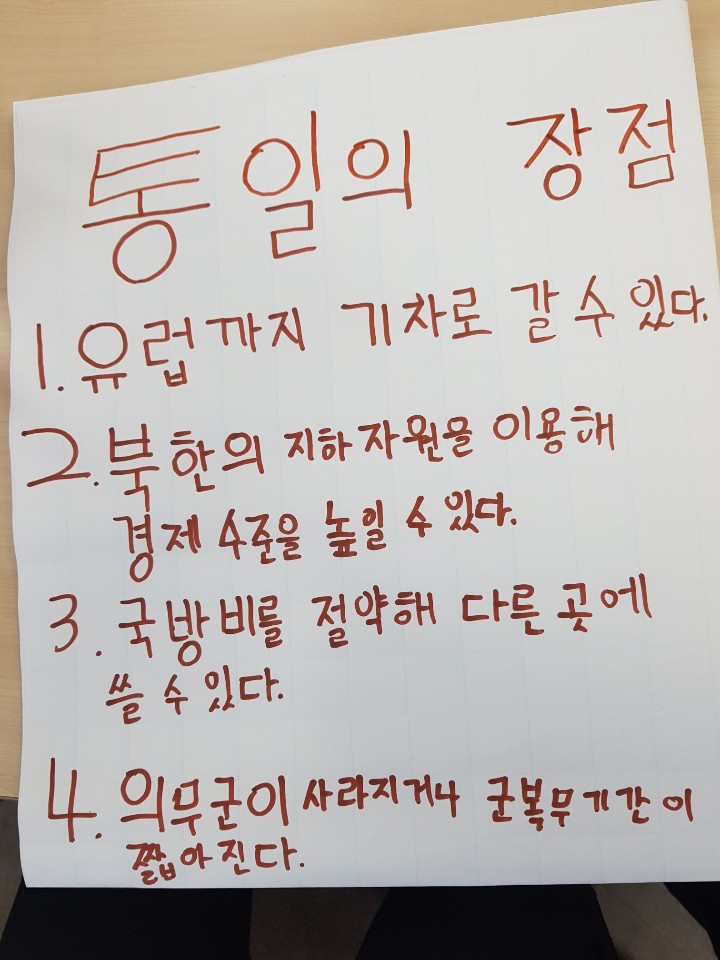 통일의 장점
1. 유럽까지 기차로 갈 수 있다.
2. 북한의 지하자원을 이용해
경제 수준을 높일 수 있다.
3. 국방비를 절약해 다른 곳에
쓸 수 있다.
4. 의무군이 사라지거나 군복무기간이
짧아진다.